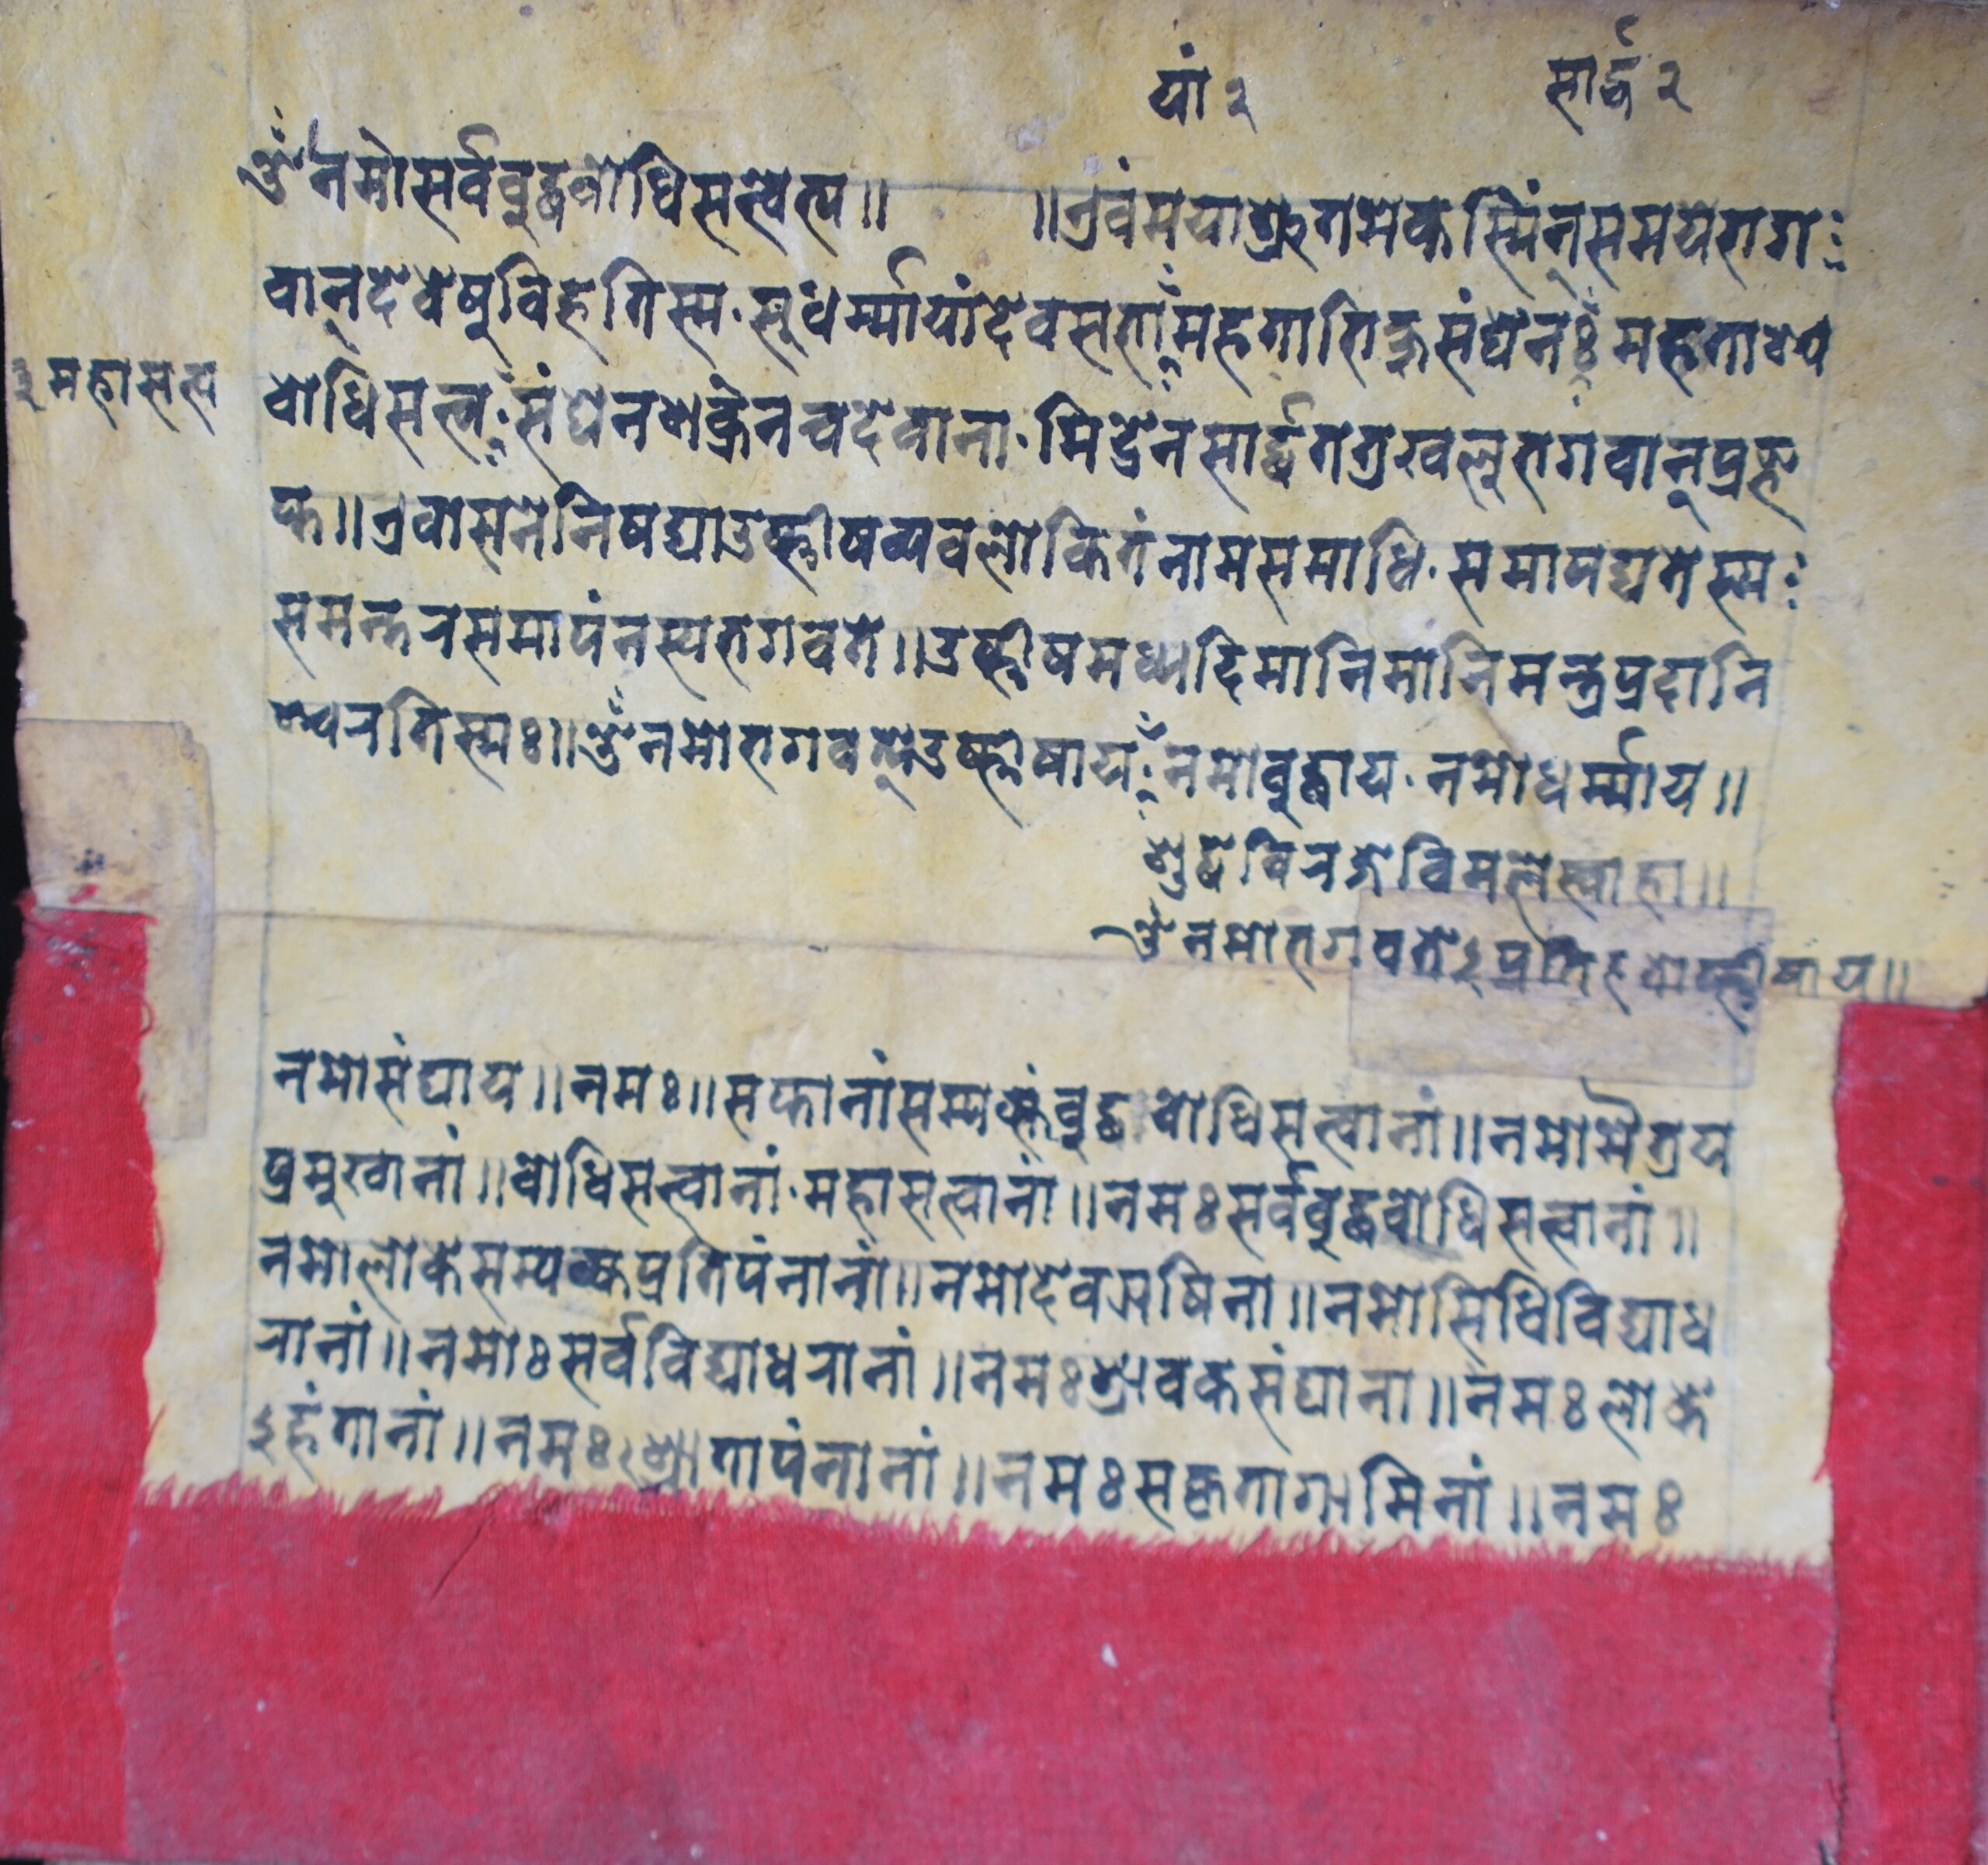 यां २ सार्द्धं २
ॐ नमो सर्वबुद्धबोधिसत्त्वेभ्य॥ ॥एवंमयाश्रुतमेकस्मिंन्समयेभग
वान्देवेषुविहतिस्म·सुधंर्म्मायांदेवसभां महताभिक्षुसंघेन महता
३ महासत्व
बोधिसत्त्व संघेनशक्रेनचदेवाना·मिद्रेनसार्द्धतत्रखलुभगवान्प्रज्ञ
प्त॥एवासनेनिषद्याउष्णीषव्यवलोकितंनामसमाधि·समापद्यतेस्म
समन्तरसमापंनस्यभगवते॥उष्णीषमध्यादिमानिमानिमन्त्रप्रदानि
श्चरतिस्मः॥ॐनमोभगवत्येउष्णीषाय नमोबुद्धाय·नमोधर्म्माय॥
शुद्धेविरजेविमलेस्वाहा॥
ॐनमोभगवतेऽप्रतिहतोष्णीषाय॥
नमोसंघाय॥नमः॥सप्तानांसम्यक्संबुद्धबोधिसत्त्वानां॥नमोमैत्रय
प्रमुखानां॥बोधिसत्त्वानां·महासत्त्वानां॥नमःसर्वबुद्धबोधिसत्त्वानां॥
नमोलोकेसम्यक्प्रतिपंनानां॥नमोदेवऋषिना॥नमोसिधिविद्याध
रानां॥नमोःसर्वविद्याधरानां॥नमःश्रावकसंघाना॥नमःलोके
ऽर्हंतानां॥नमः श्रोतापंनानां॥नमःसकृतागामिनां॥नमः